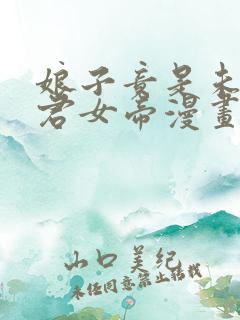 娘子竟是未
君女帝漫畫
山口美紀
未经同意禁止转载